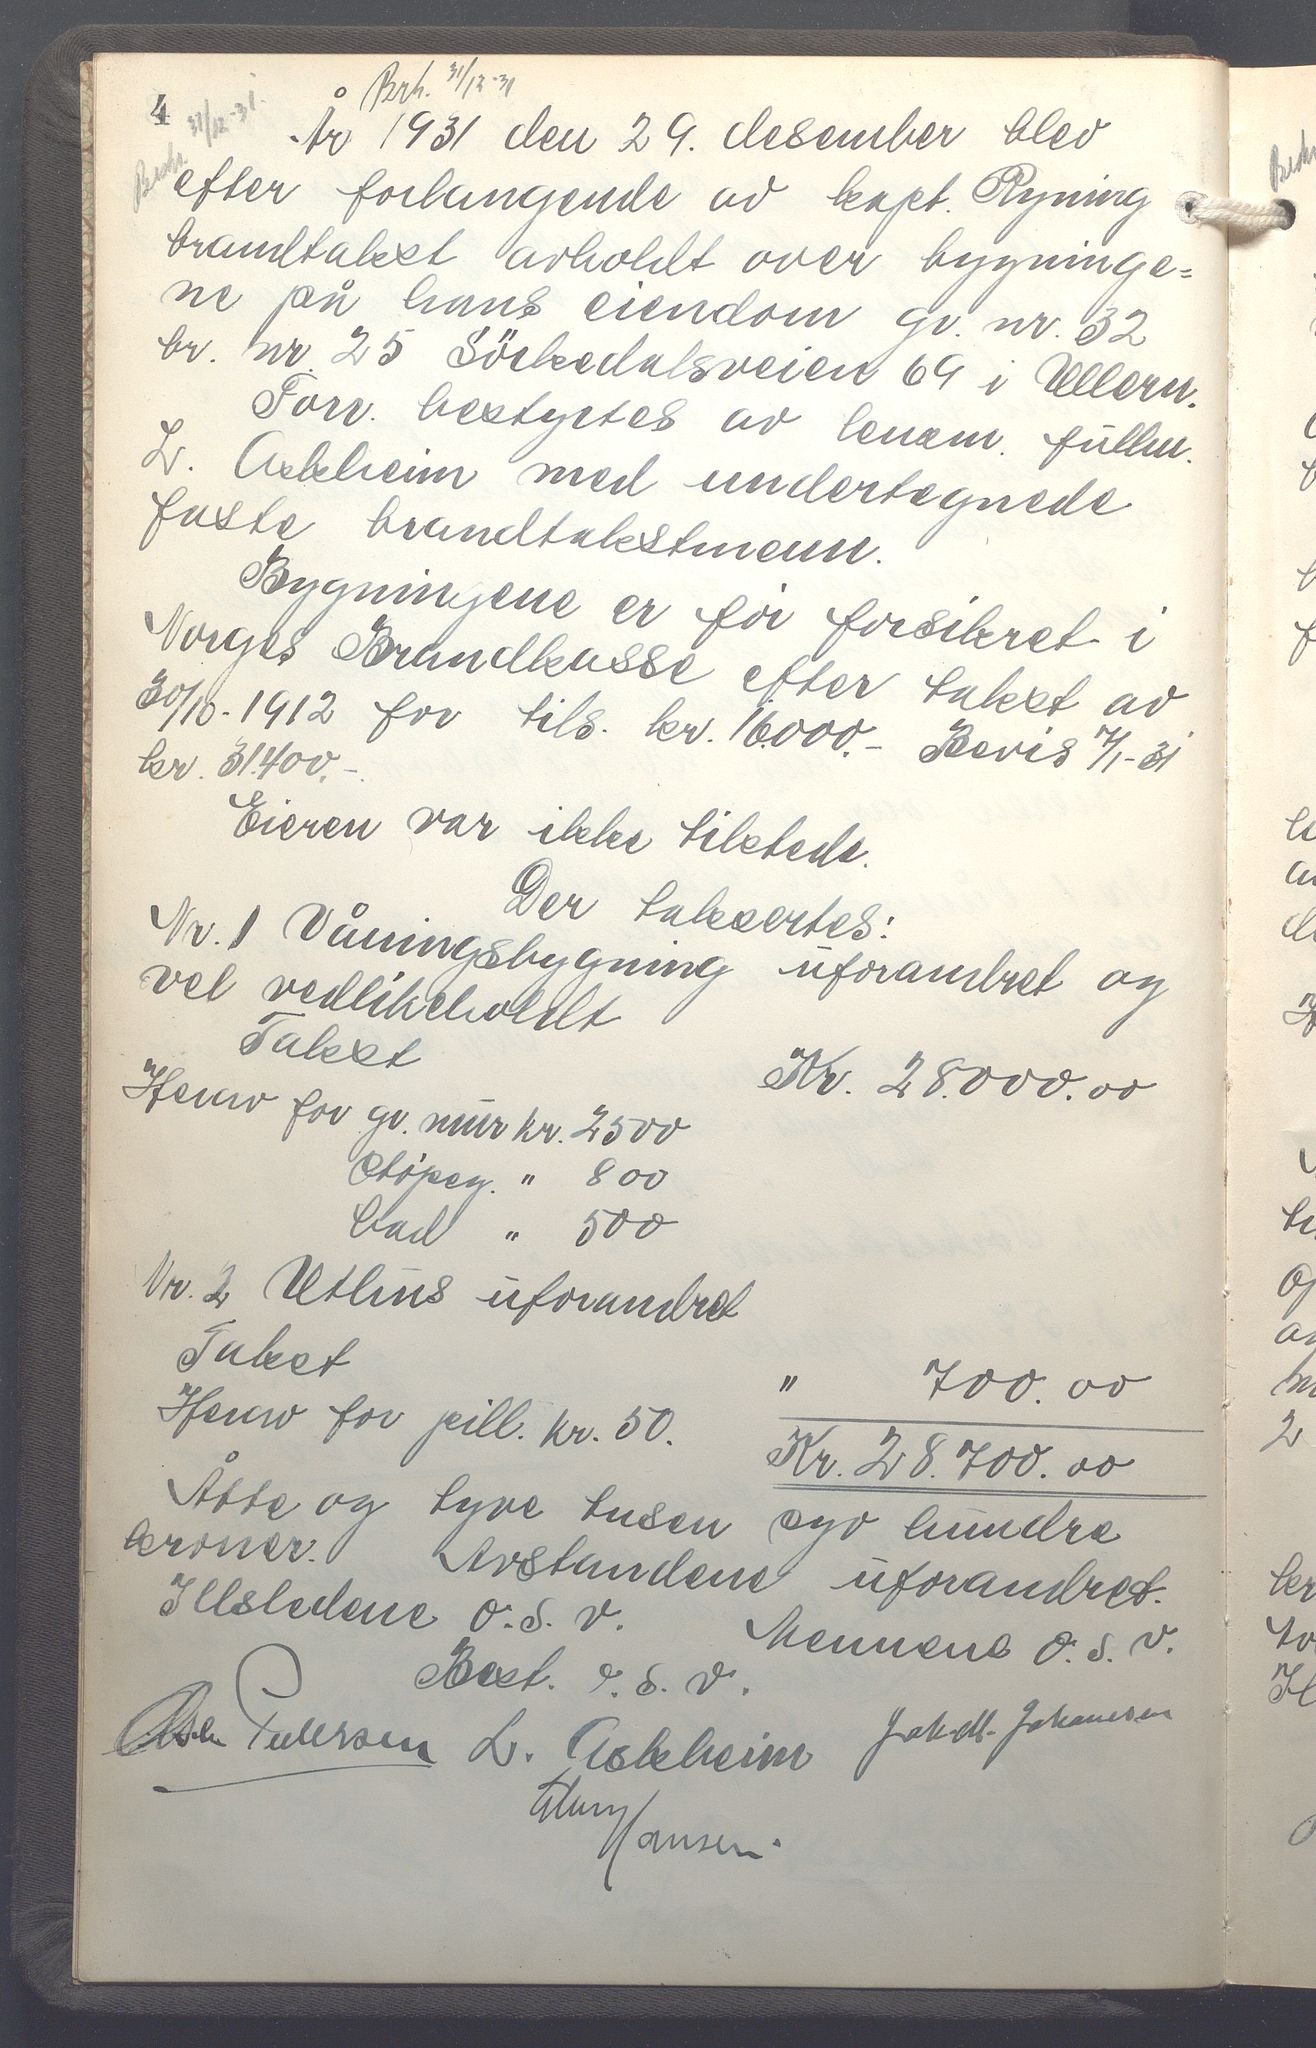 4
Berh. 31/12-31
31/12-31.
År 1931 den 29. desember blev
efter forlangende av kapt. Ryning
brandtakst avholdt over bygninge=
ne på hans eiendom gr. nr. 32
br. nr. 25 Sörkedalsveien 69 i Ullern.
Forr. bestyrtes av lensm. fullm.
L. Askheim med undertegnede
faste brandtakstmenn.
Bygningene er för forsikret i
Norges Brandkasse efter takst av
30/10-1912 for tils. kr. 16.000.- Bevis 7/1-31
kr. 31.400.-
Eieren var ikke tilstede.
Der takseertes:
Nr. 1 Våningsbygning uforandret og
vel vedlikeholdt
Takst Kr. 28.000.00
Herav for gr. mur kr. 2500
Støpeg. " 800
bad " 500
Nr. 2 Uthus uforandret
Takst " 700.00
Herav for pill. kr. 50.
Kr. 28.700.00
Åtte og tyve tusen syv hundre
kroner. Avstandene uforandret.
Ildstedene o.s.v. Mennene o.s.v.
Best. o.s.v.
Pedersen L. Askheim Johansen
Hansen.